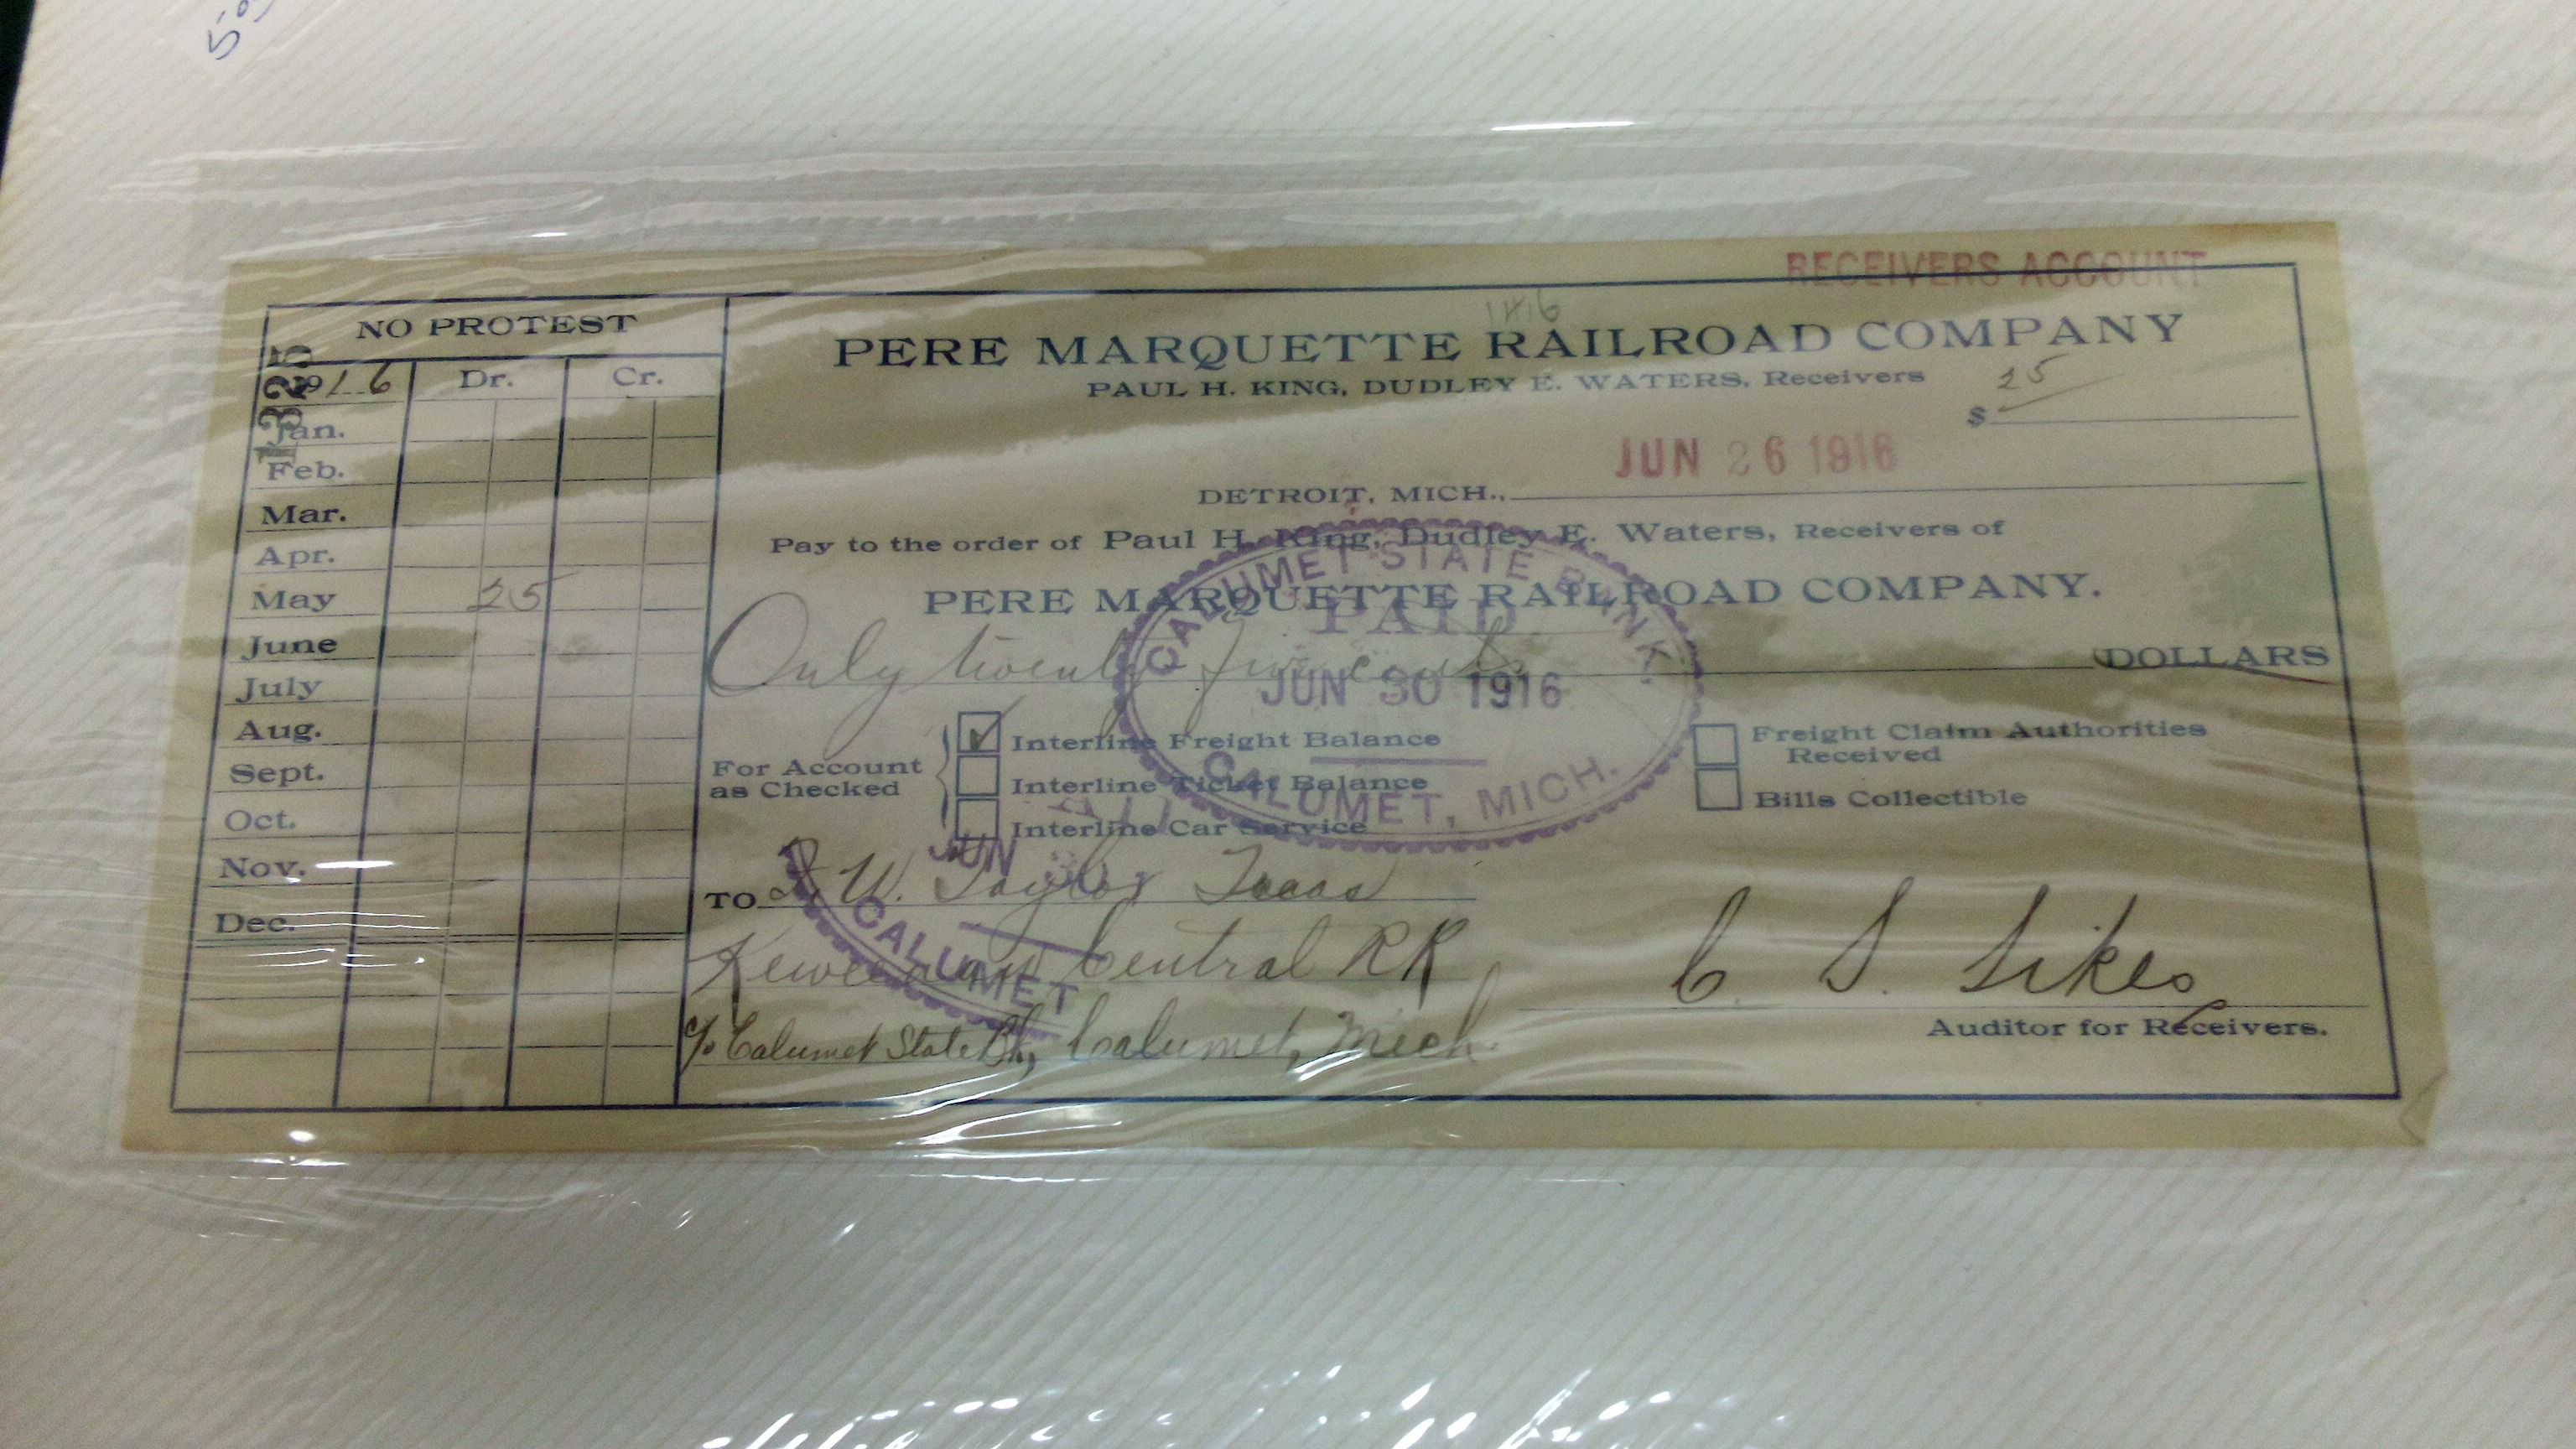 RECEIVERS ACCOUNT
NO PROTEST
1916 Dr. Cr.
Jan.
Feb.
Mar.
Apr.
May 25
June
July
Aug.
Sept.
Oct.
Nov.
Dec.
1416
PERE MARQUETTE RAILROAD COMPANY
PAUL H. KING, DUDLEY E. WATERS, Receivers
$ 25
DETROIT, MICH., JUN 26 1916
Pay to the order of Paul H. King, Dudley E. Waters, Receivers of
PERE MARQUETTE RAILROAD COMPANY.
Only twenty five cents DOLLARS
CALUMET STATE BANK.
PAID
JUN 30 1916
CALUMET, MICH.
For Account
as Checked
Interline Freight Balance
Interline Ticket Balance
Interline Car Service
Freight Claim Authorities
Received
Bills Collectible
JUN 30
CALUMET
TO W. Taylor Treas
Keweenaw Central RR
c/o Calumet State Bk, Calumet, Mich.
C. S. Sikes
Auditor for Receivers.